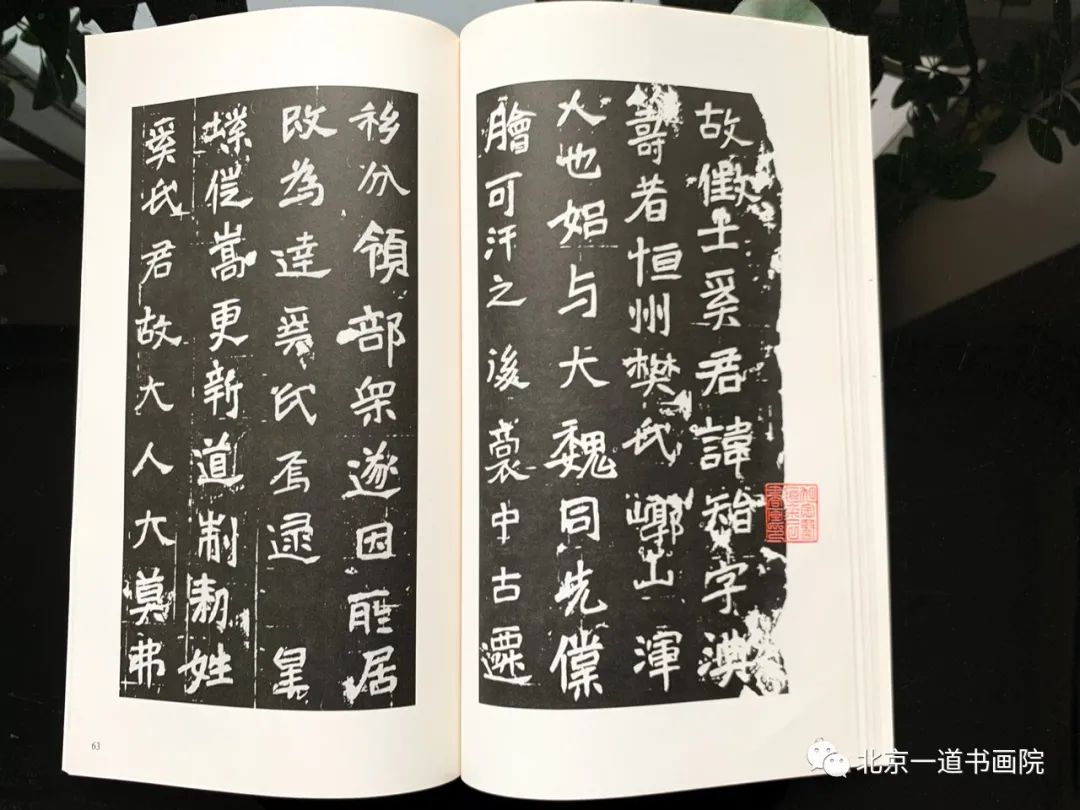 故徵士奚君諱智字淇
籌者恒州樊氏崞山渾
人也始与大魏同先僕
膾可汗之後裔中古遷
移分領部眾遂因所居
改為達奚氏焉逮皇
業徙嵩更新道制勑姓
奚氏君故大人大莫弗
63
北京一道书画院